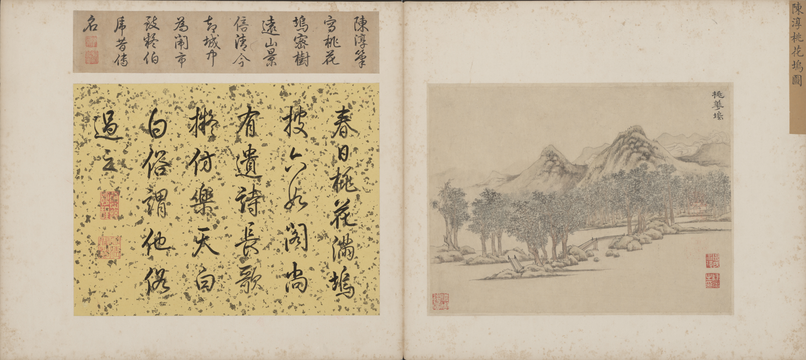 陳淳桃花塢圖
桃花塢
陳淳筆
写桃花
塢密樹
遠山景
倍清今
城中
為鬧市
設疑伯
虎昔傳
名
春日桃花滿塢
披六如閣尚
有遺詩長歌
擬仿樂天白
白俗謂他俗
過之